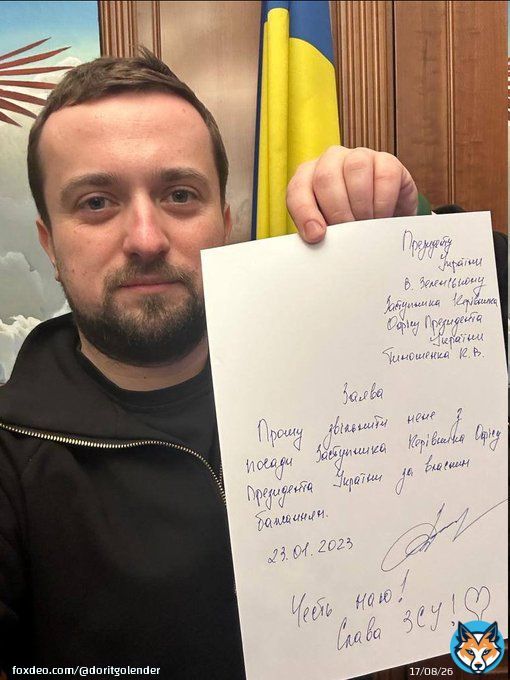 Президенту
України
В. Зеленському
Заступника Керівника
Офісу Президента
України
Тимошенка К.В.
Заява
Прошу звільнити мене з
посади Заступника Керівника Офісу
Президента України за власним
бажанням.
23.01.2023
Честь маю!
Слава ЗСУ!
foxdeo.com/@doritgolender
17/08/26